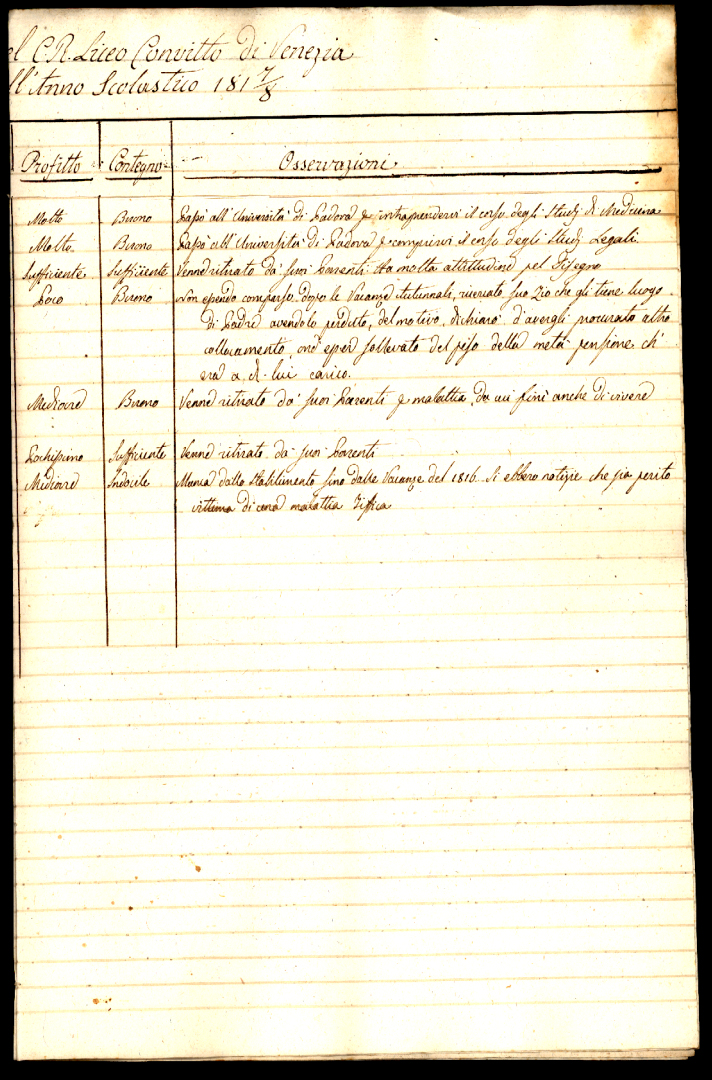 el C.R. Liceo Convitto di Venezia
ll'Anno Scolastico 181 7/8
Profitto Contegno Osservazioni
Molto Buono Passò all'Università di Padova p intraprendervi il corso degli Studj di Medicina
Molto Buono Passò all'Università di Padova p compiervi il corso degli Studj Legali
Sufficiente Sufficiente Venne ritirato da' suoi Parenti. Ha molta attitudine pel Disegno
Poco Buono Non essendo comparso dopo le Vacanze Autunnali, ricercato suo Zio che gli tiene luogo
di Padre avendolo perduto, del motivo, dichiarò d'avergli procurato altro
collocamento, ond'esser sollevato del peso della metà pensione ch'
era a di lui carico.
Mediocre Buono Venne ritirato da' suoi Parenti p malattia, da cui finì anche di vivere
Pochissimo Sufficiente Venne ritirato da' suoi Parenti
Mediocre Indocile Manca dallo Stabilimento fino dalle Vacanze del 1816. Si ebbero notizie che sia perito
vittima di una malattia Tisica